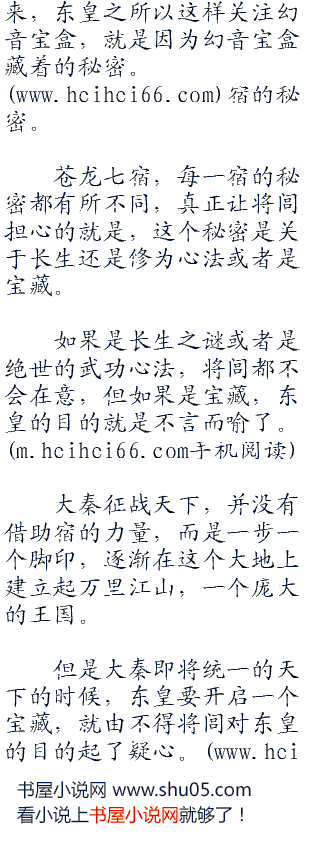 来，东皇之所以这样关注幻
音宝盒，就是因为幻音宝盒
藏着的秘密。
(www.hcihci66.com)宿的秘
密。
苍龙七宿，每一宿的秘
密都有所不同，真正让将闾
担心的就是，这个秘密是关
于长生还是修为心法或者是
宝藏。
如果是长生之谜或者是
绝世的武功心法，将闾都不
会在意，但如果是宝藏，东
皇的目的就是不言而喻了。
(m.hcihci66.com手机阅读)
大秦征战天下，并没有
借助宿的力量，而是一步一
个脚印，逐渐在这个大地上
建立起万里江山，一个庞大
的王国。
但是大秦即将统一的天
下的时候，东皇要开启一个
宝藏，就由不得将闾对东皇
的目的起了疑心。(www.hci
书屋小说网 www.shu05.com
看小说上书屋小说网就够了！